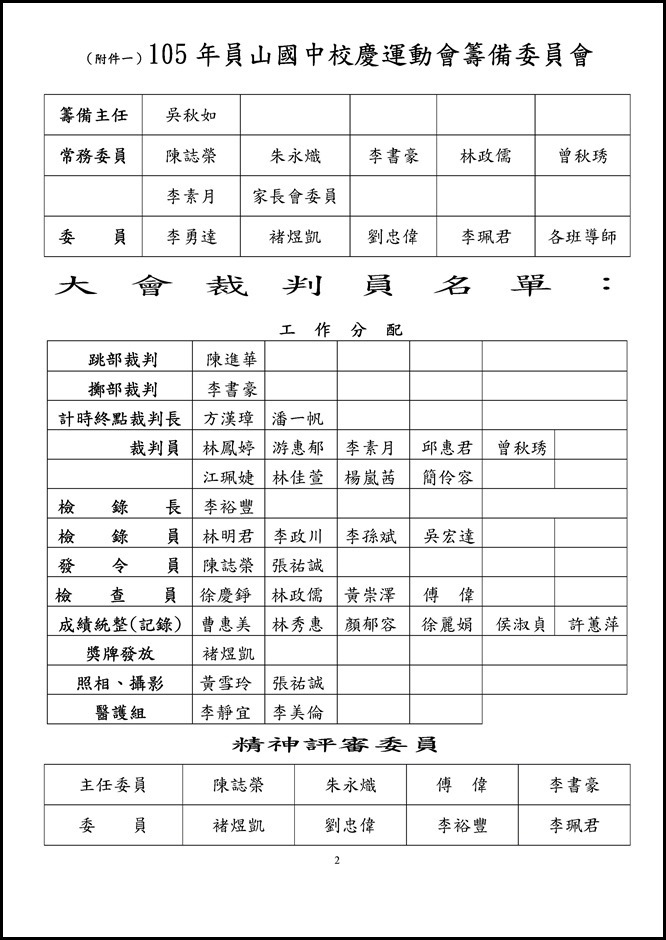 （附件一）105 年員山國中校慶運動會籌備委員會
籌備主任 吳秋如
常務委員 陳誌榮 朱永熾 李書豪 林政儒 曾秋琇
李素月 家長會委員
委　員 李勇達 褚煜凱 劉忠偉 李珮君 各班導師
大會裁判員名單：
工 作 分 配
跳部裁判 陳進華
擲部裁判 李書豪
計時終點裁判長 方漢璋 潘一帆
裁判員 林鳳婷 游惠郁 李素月 邱惠君 曾秋琇
江珮婕 林佳萱 楊嵐茜 簡伶容
檢　錄　長 李裕豐
檢　錄　員 林明君 李政川 李孫斌 吳宏達
發　令　員 陳誌榮 張祐誠
檢　查　員 徐慶錚 林政儒 黃崇澤 傅　偉
成績統整(記錄) 曹惠美 林秀惠 顏郁容 徐麗娟 侯淑貞 許蕙萍
獎牌發放 褚煜凱
照相、攝影 黃雪玲 張祐誠
醫護組 李靜宜 李美倫
精神評審委員
主任委員 陳誌榮 朱永熾 傅　偉 李書豪
委　員 褚煜凱 劉忠偉 李裕豐 李珮君
2